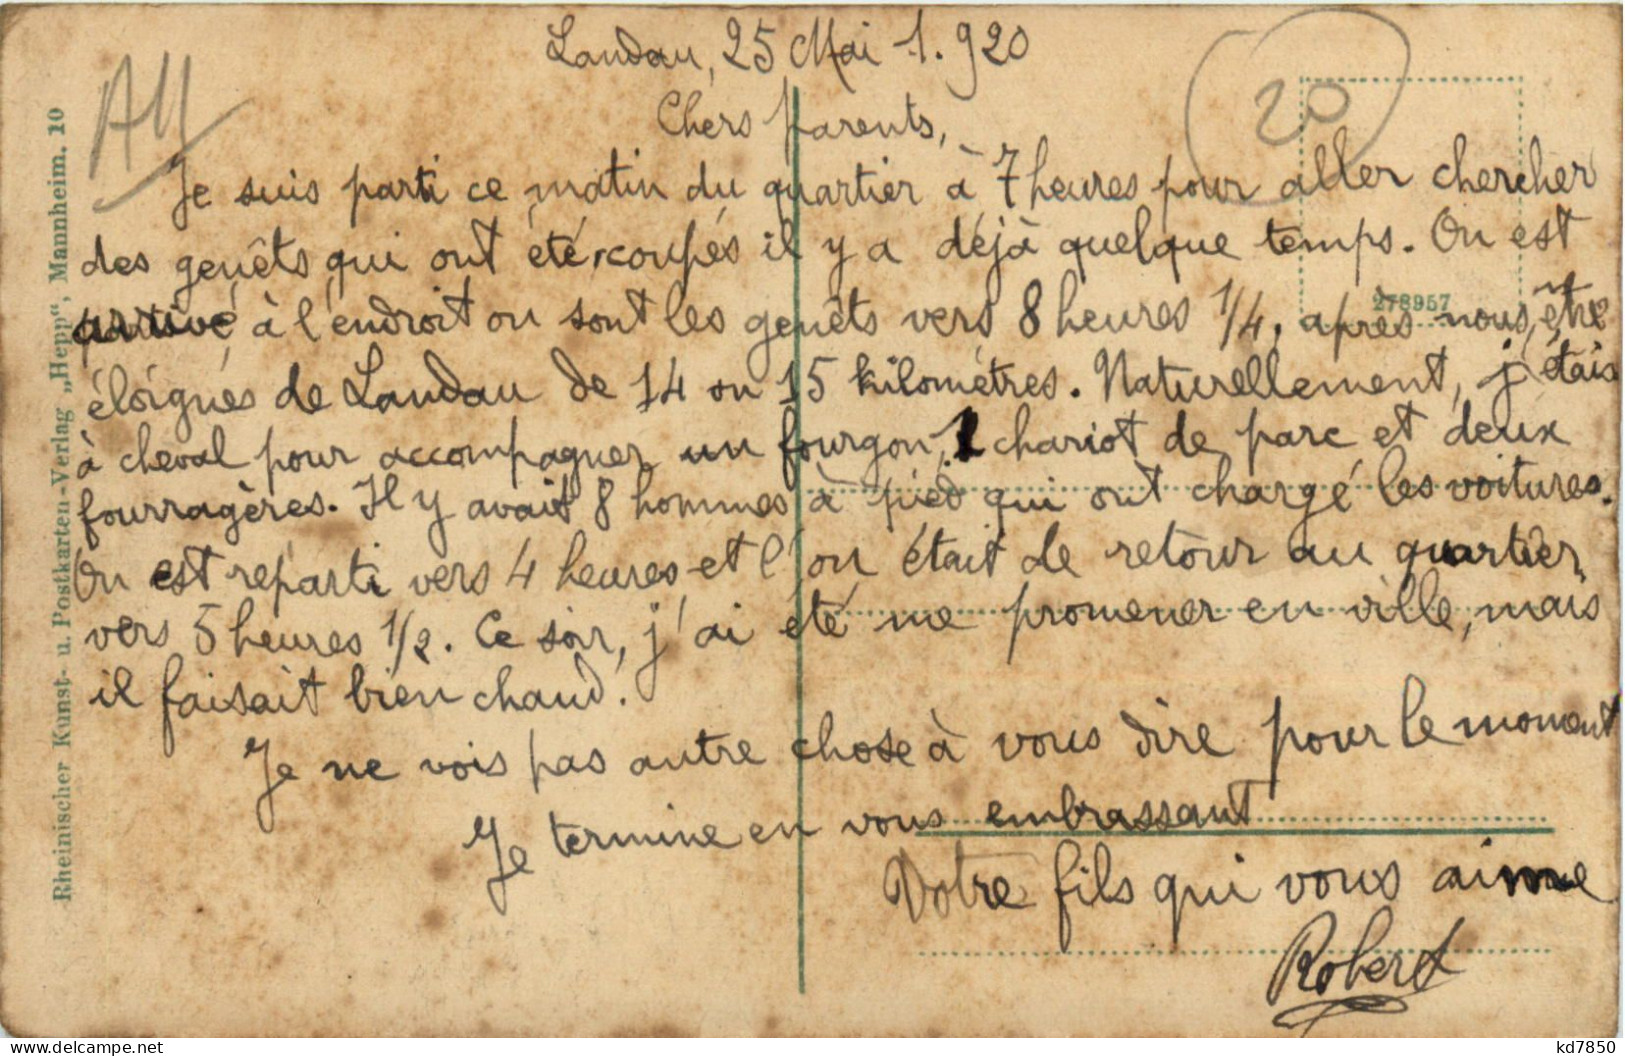 Landau, 25 Mai 1.920
Chers parents,
Je suis parti ce matin du quartier à 7 heures pour aller chercher
des genêts qui ont été coupés il y a déjà quelque temps. On est
arrivé à l'endroit ou sont les genêts vers 8 heures 1/4, après nous être
éloignés de Landau de 14 ou 15 kilomètres. Naturellement, j'étais
à cheval pour accompagner un fourgon, 1 chariot de parc et deux
fourragères. Il y avait 8 hommes à pied qui ont chargé les voitures.
On est reparti vers 4 heures, et l'on était de retour au quartier
vers 5 heures 1/2. Ce soir, j'ai été me promener en ville, mais
il faisait bien chaud.
Je ne vois pas autre chose à vous dire pour le moment
Je termine en vous embrassant
Votre fils qui vous aime
Robert
20
278957
Rheinischer Kunst- u. Postkarten-Verlag „Hepp“, Mannheim. 10
kd7850